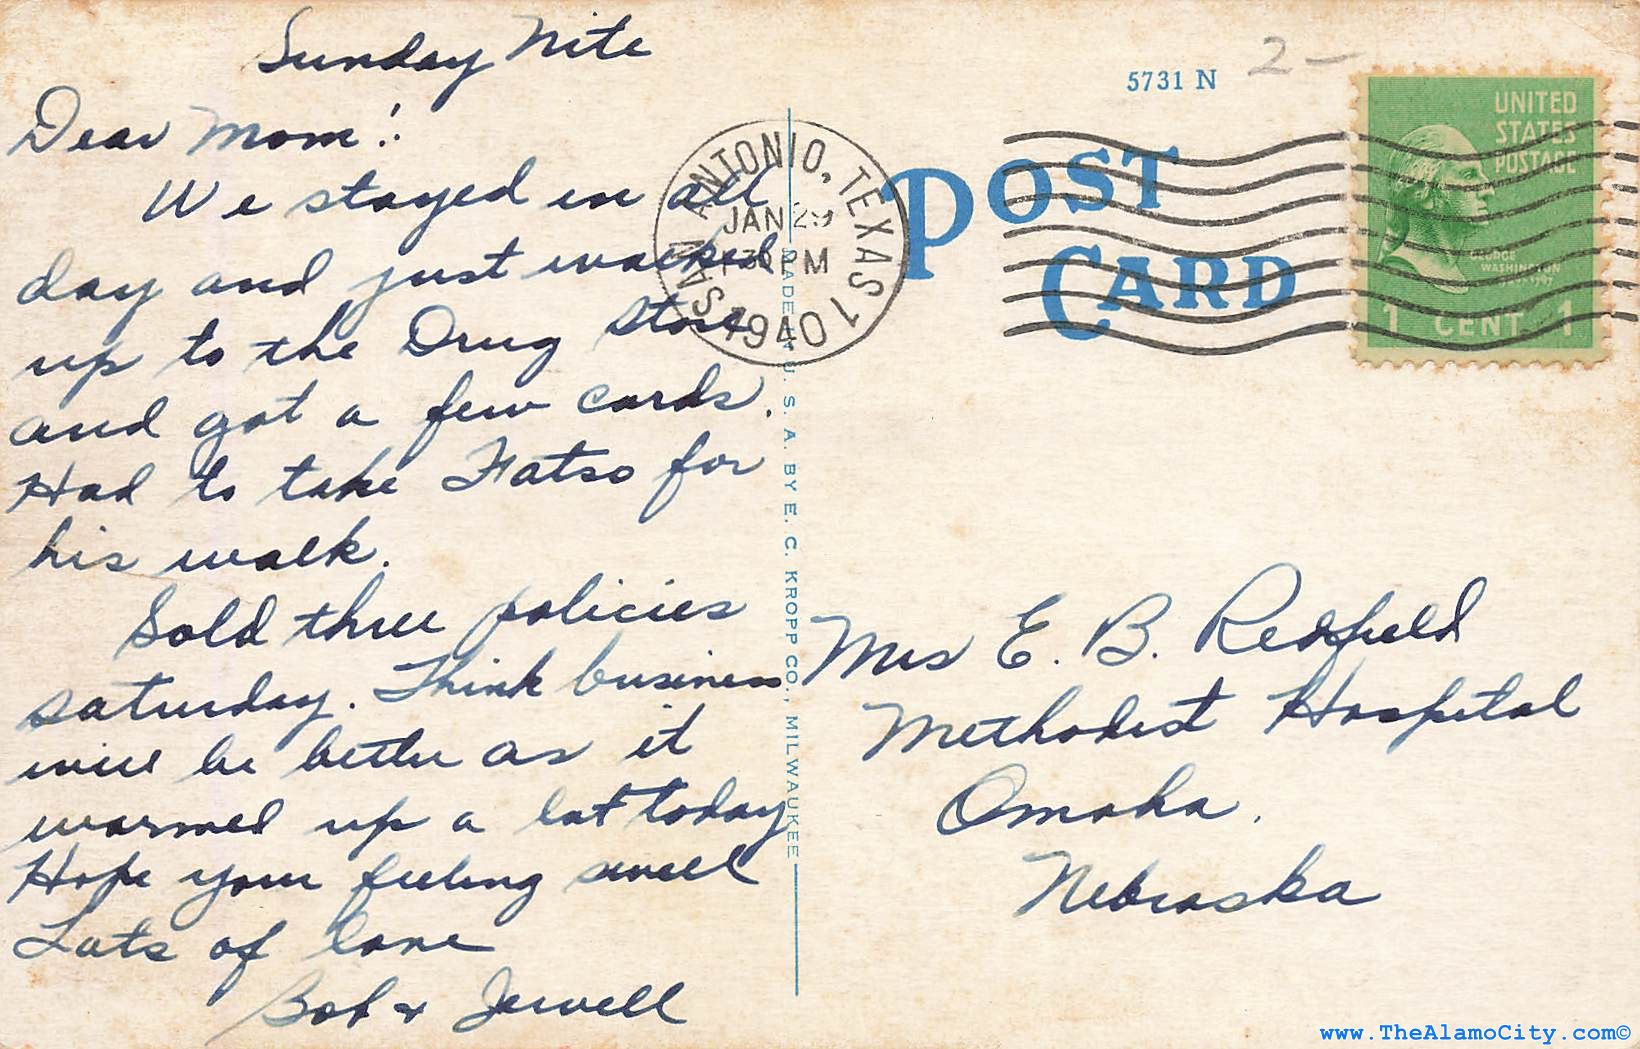 Sunday Nite
Dear Mom!
We stayed in all
day and just walked
up to the Drug Store
and got a few cards.
Had to take Fatso for
his walk.
Sold three policies
saturday. Think business
will be better as it
warmed up a lot today
Hope your feeling swell
Lots of love
Bob & Jewell
MADE IN U. S. A. BY E. C. KROPP CO., MILWAUKEE
SAN ANTONIO, TEXAS 1
JAN 29
PM
1940
5731 N
2-
POST
CARD
UNITED
STATES
POSTAGE
GEORGE
WASHINGTON
1 CENT 1
Mrs E. B. Redfield
Methodist Hospital
Omaha.
Nebraska
www.TheAlamoCity.com©